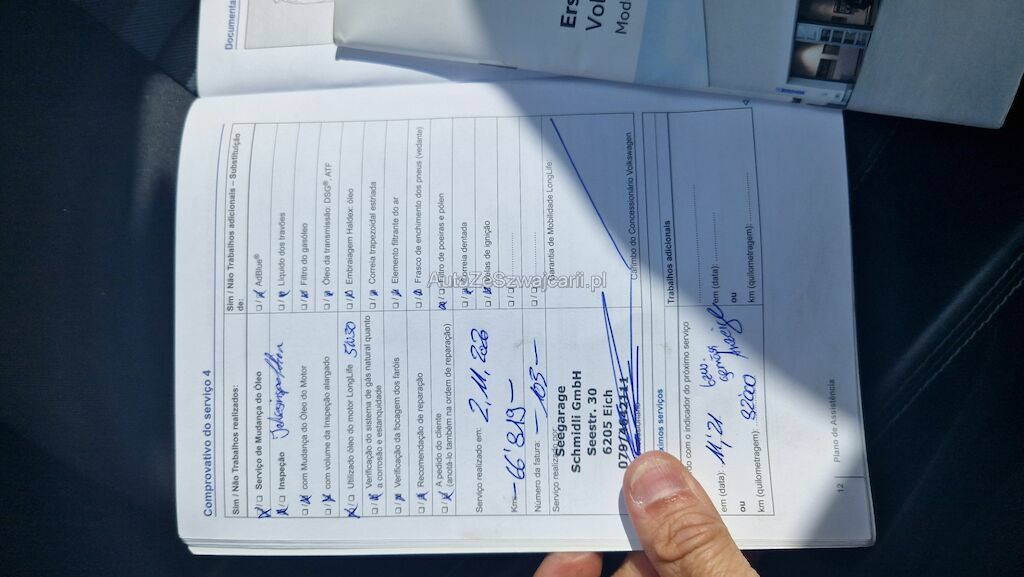 Documenta
Ers
Vol
Mod
Comprovativo do serviço 4
Sim / Não Trabalhos realizados:
☒ / ☐ Serviço de Mudança do Óleo
☒ / ☐ Inspeção
☐ / ☒ com Mudança do Óleo do Motor
☐ / ☒ com volume da Inspeção alargado
☒ / ☐ Utilizado óleo do motor LongLife
☐ / ☒ Verificação do sistema de gás natural quanto
a corrosão e estanquidade
☐ / ☒ Verificação da focagem dos faróis
☐ / ☒ Recomendação de reparação
☐ / ☒ A pedido do cliente
(anotá-lo também na ordem de reparação)
Serviço realizado em: 2,11,2020
Km: 66'819
Número da fatura: 103
Serviço realizado por:
Seegarage
Schmidli GmbH
Seestr. 30
6205 Eich
Sim / Não Trabalhos adicionais – Substituição
de:
☐ / ☒ AdBlue®
☐ / ☒ Líquido dos travões
☐ / ☒ Filtro do gasóleo
☐ / ☒ Óleo da transmissão: DSG®, ATF
☐ / ☒ Embraiagem Haldex: óleo
☐ / ☒ Correia trapezoidal estriada
☐ / ☒ Elemento filtrante do ar
☐ / ☒ Frasco de enchimento dos pneus (vedante)
Filtro de poeiras e pólen
☐ / ☒ Correia dentada
☐ / ☒ Velas de ignição
☐ / ☐
☐ / ☐
Garantia de Mobilidade LongLife:
Carimbo do Concessionário Volkswagen
ximos serviços
do com o indicador do próximo serviço
em (data): 11'21
ou
km (quilometragem): 92'000
Trabalhos adicionais
em (data):
ou
km (quilometragem):
12
Plano de Assistência
AutoZeSzwajcarii.pl